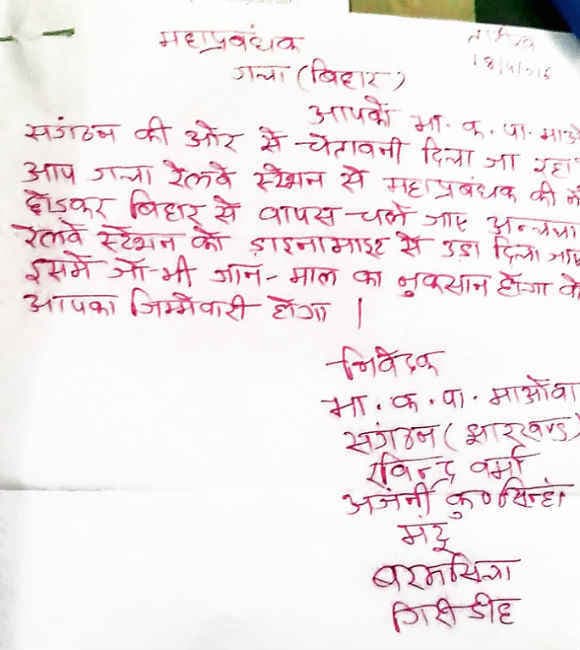 महाप्रबंधक
गया (बिहार)
आपको भा. क. पा. माओ
संगठन की ओर से चेतावनी दिया जा रहा
आप गया रेलवे स्टेशन से महाप्रबंधक की
छोडकर बिहार से वापस चले जाए अन्यथा
रेलवे स्टेशन को डाइनामाइट से उडा दिया जाए
इसमें जो-भी जान-माल का नुकसान होगा वो
आपका जिम्मेवारी होगा |
निवेदक
भा. क. पा. माओवा
संगठन (झारखण्ड)
रविन्द्र वर्मा
कु० सिन्हा
मंटू
बरमसिया
गिरीडीह